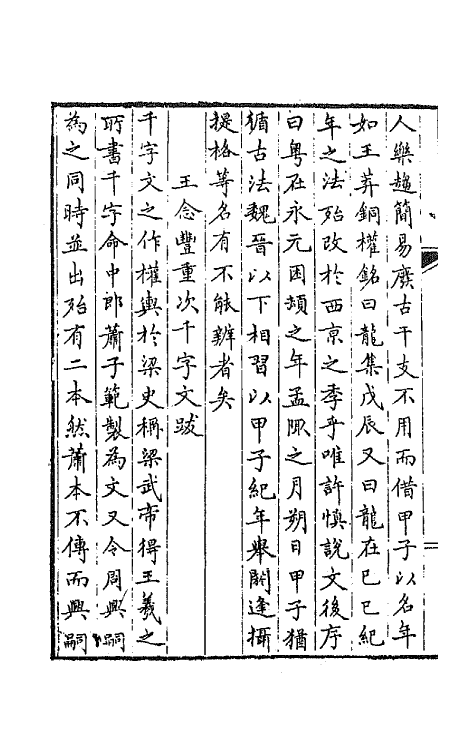 人樂趨簡易廢古干支不用而借甲子以名年
如王莽銅權銘曰龍集戊辰又曰龍在己巳紀
年之法殆改於西京之季乎唯許慎說文後序
曰粤在永元困頓之年孟陬之月朔日甲子猶
循古法魏晉以下相習以甲子紀年舉閼逢攝
提格等名有不能辨者矣
王念豐重次千字文跋
千字文之作權輿於梁史稱梁武帝得王羲之
所書千字命中郎蕭子範製為文又令周興嗣
為之同時並出殆有二本然蕭本不傳而興嗣